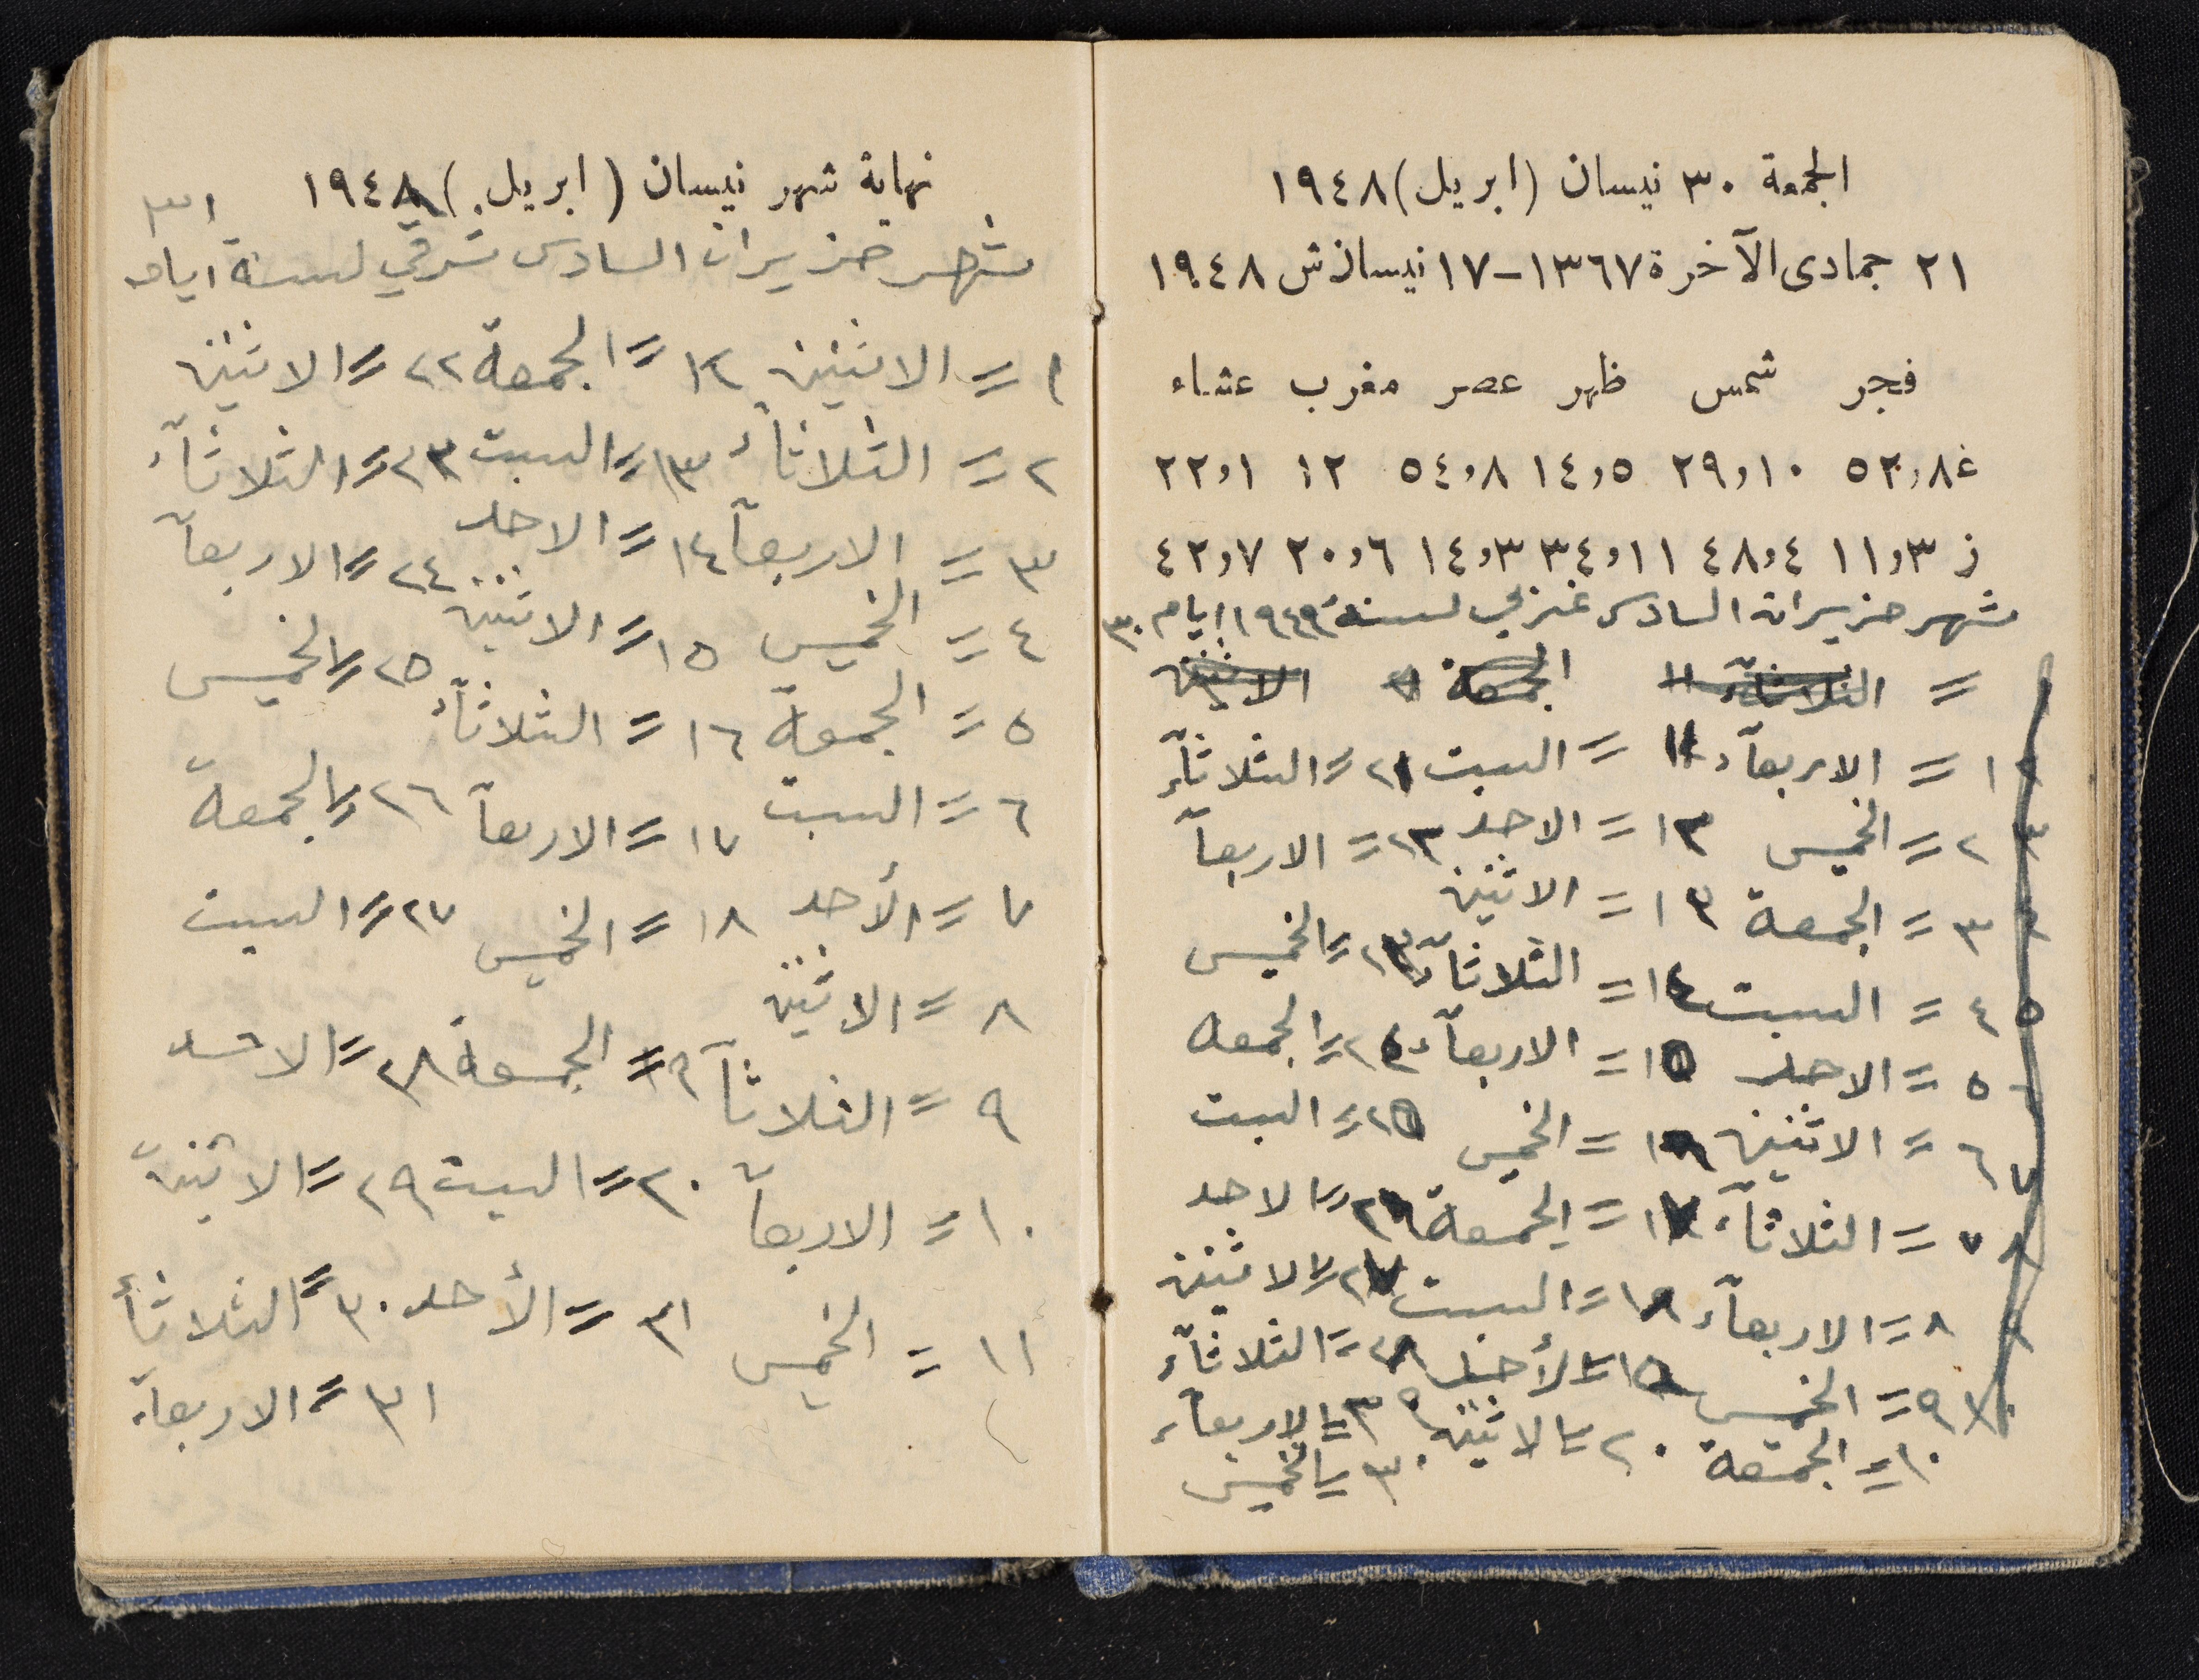 الجمعة ٣٠ نيسان (ابريل) ١٩٤٨
٢١ جمادى الآخرة ١٣٦٧ - ١٧ نيسان ش ١٩٤٨
فجر شمس ظهر عصر مغرب عشاء
غ ٥٢,٨ ٢٩,١٠ ١٤,٥ ٥٤,٨ ١٢ ٢٢,١
ز ١١,٣ ٤٨,٤ ٣٤,١١ ١٤,٣ ٢٠,٦ ٤٢,٧
شهر حزيران السادس غربي لسنة ١٩٤٩ ايام ٣٠
= الثلاثاء ١١ الجمعة الاثنين
١ = الاربعآء ١١ = السبت ٢١ = الثلاثآء
٢ = الخميس ١٢ = الاحد ٢٢ = الاربعآ
٣ = الجمعة ١٣ = الاثنين
٤ = السبت ١٤ = الثلاثآء ٢٣ = الخميس
٥ = الاحد ١٥ = الاربعآء ٢٤ = الجمعه
٦ = الاثنين ١٦ = الخميس ٢٥ = السبت
٧ = الثلاثآء ١٧ = الجمعة ٢٦ = الاحد
٨ = الاربعآء ١٨ = السبت ٢٧ = الاثنين
٩ = الخميس ١٩ = الأحد ٢٨ = الثلاثآء
١٠ = الجمعة ٢٠ = الاثنين ٢٩ = الاربعآء
٣٠ = الخميس
نهاية شهر نيسان (ابريل) ١٩٤٨
شهر حزيران السادس شرقي لسنة ايام ٣١
١ = الاثنين ١٢ = الجمعة ٢٢ = الاثنين
٢ = الثلاثآء ١٣ = السبت ٢٣ = الثلاثآء
٣ = الاربعآ ١٤ = الاحد ٢٤ = الاربعآ
٤ = الخميس ١٥ = الاثنين ٢٥ = الخميس
٥ = الجمعة ١٦ = الثلاثآء
٦ = السبت ١٧ = الاربعآ ٢٦ = الجمعة
٧ = الأحد ١٨ = الخميس ٢٧ = السبت
٨ = الاثنين
٩ = الثلاثآ ١٩ = الجمعة ٢٨ = الاحد
١٠ = الاربعآ ٢٠ = السبت ٢٩ = الاثنين
١١ = الخميس ٢١ = الأحد ٣٠ = الثلاثآ
٣١ = الاربعآء